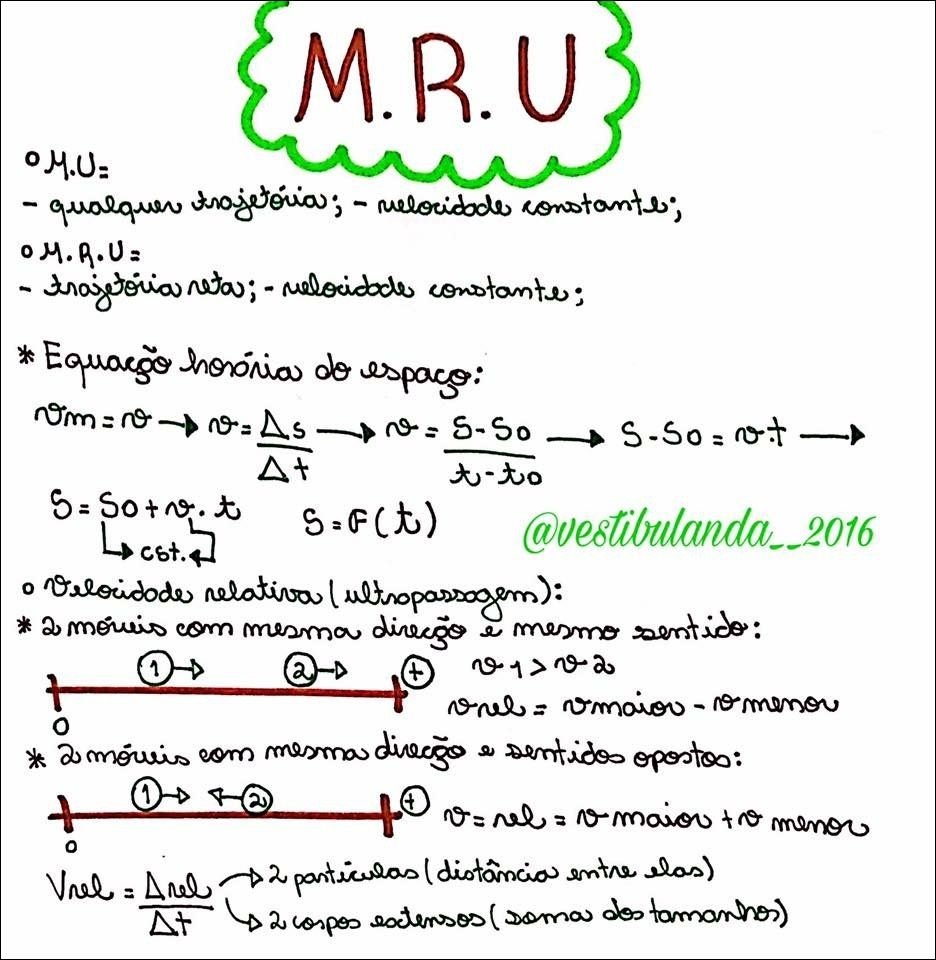 M.R.U
o M.U=
- qualquer trajetória; - velocidade constante;
o M.R.U=
- trajetória reta; - velocidade constante;
* Equação horária do espaço:
vm = v → v = Δs/Δt → v = S-So/t-to → S-So = v.t →
S = So + v.t S = F(t)
cst.
@vestibulanda__2016
o Velocidade relativa (ultrapassagem):
* 2 móveis com mesma direção e mesmo sentido:
1 → 2 → + v1 > v2
0 vrel = vmaior - vmenor
* 2 móveis com mesma direção e sentidos opostos:
1 → ← 2 + v=rel = v maior + v menor
0
Vrel = Δrel/Δt → 2 partículas (distância entre elas)
→ 2 corpos extensos (soma dos tamanhos)